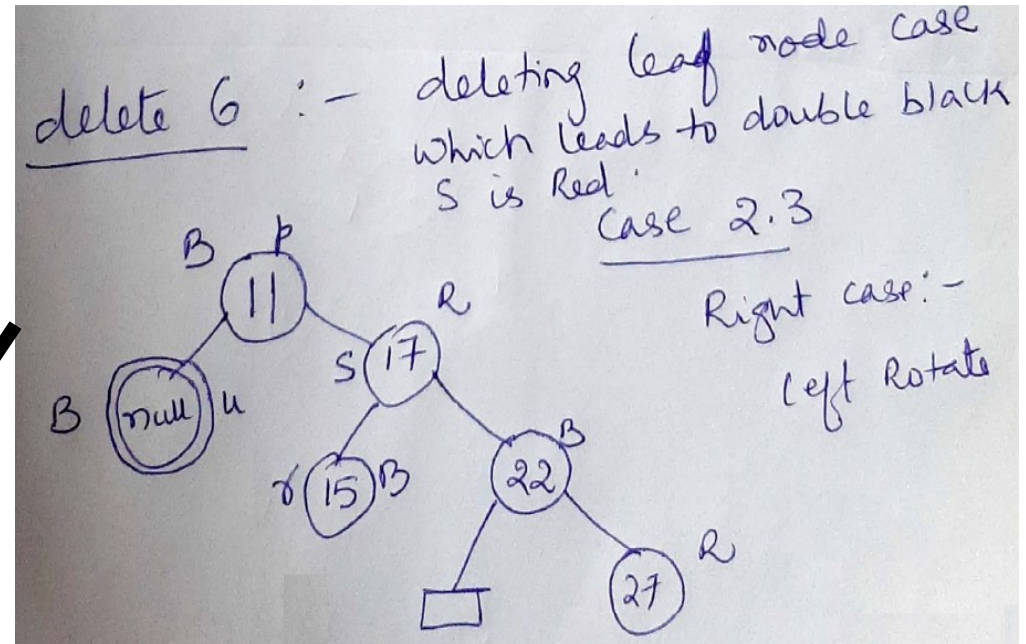 delete 6 :- deleting leaf node case
which leads to double black
S is Red.
Case 2.3
Right case:-
left Rotate
B p
11
R
S 17
B null u
r 15 B
B
22
R
27